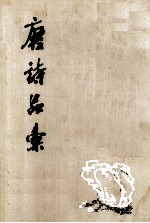 唐詩品彙